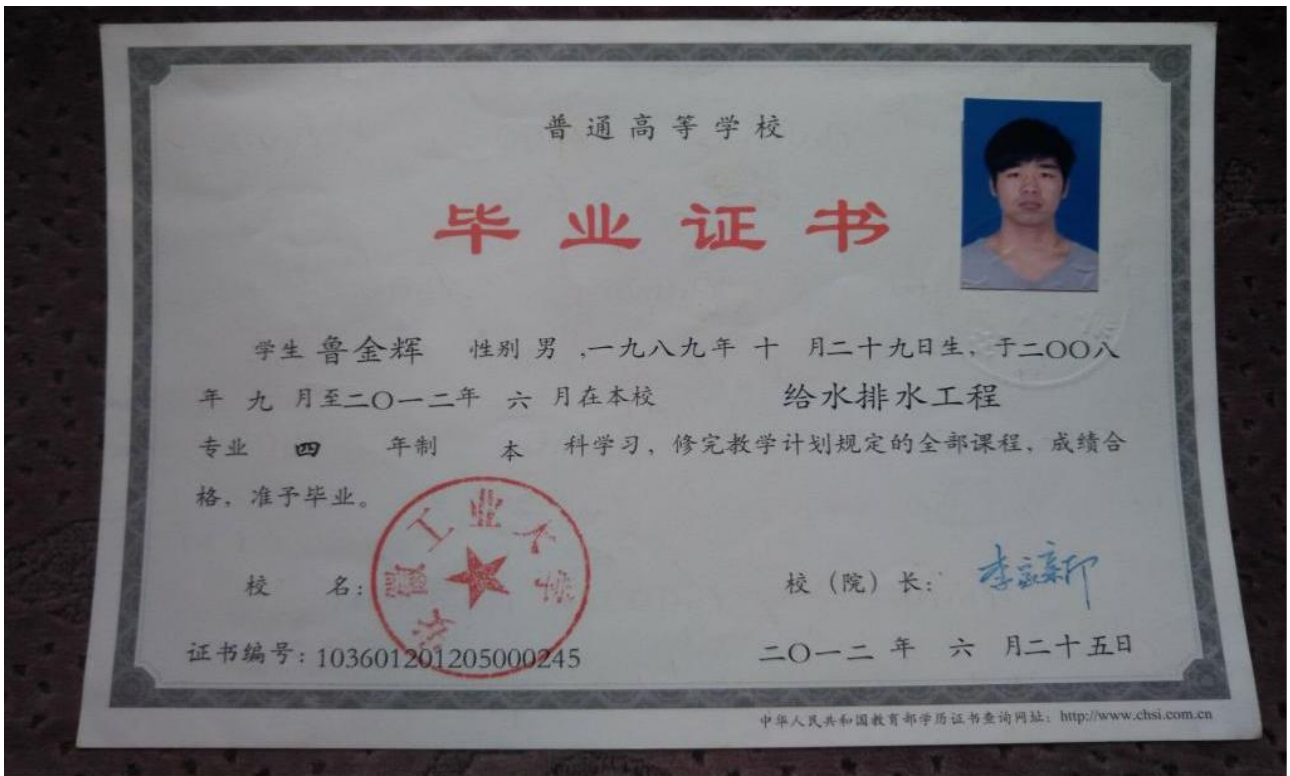 普通高等学校
毕业证书
学生 鲁金辉 性别 男 ,一九八九年 十 月二十九日生，于二〇〇八
年 九 月至二〇一二年 六 月在本校 给水排水工程
专业 四 年制 本 科学习，修完教学计划规定的全部课程，成绩合
格，准予毕业。
安徽工业大学
校 名： 校（院）长：
证书编号：103601201205000245 二〇一二 年 六 月二十五日
中华人民共和国教育部学历证书查询网址：http://www.chsi.com.cn